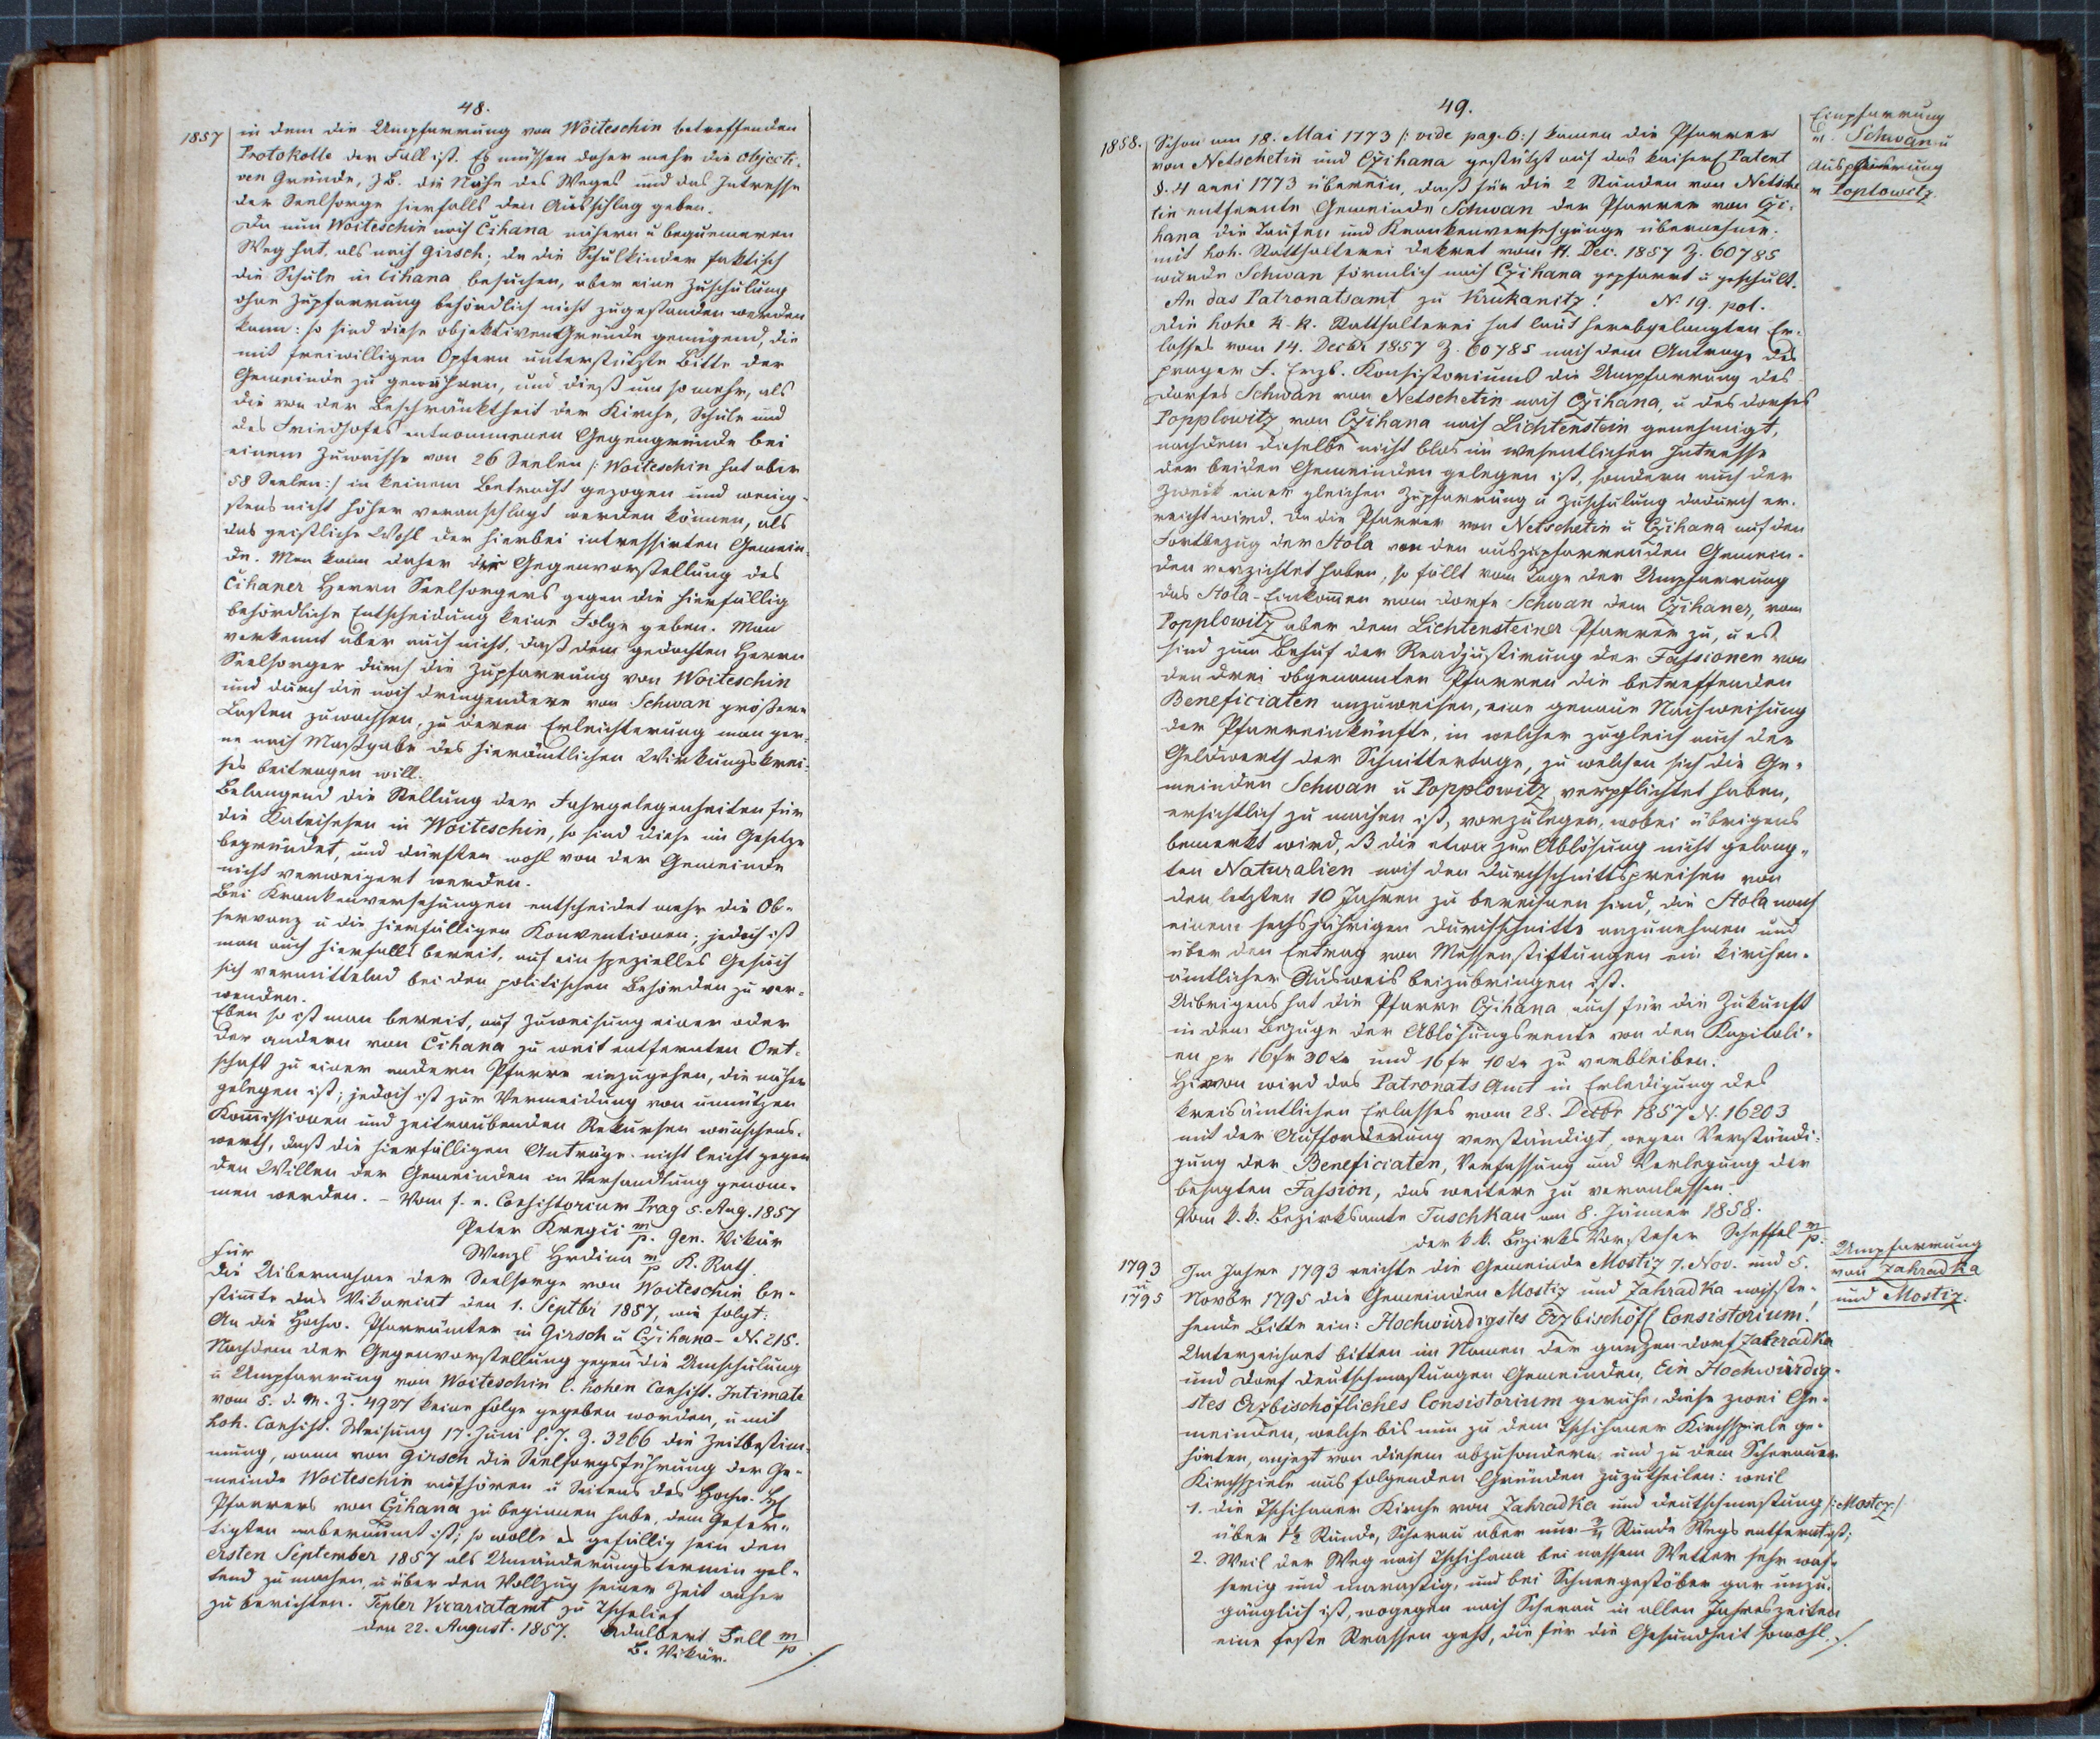 48.
1857 in dem die Umpfarrung von Woiteschin betreffenden
Protokolle der Fall ist. Es müssen daher mehr die objecti-
ven Gründe, z.B. die Nähe des Weges und das Interesse
der Seelsorge hierfalls den Ausschlag geben.
Da nun Woiteschin nach Čihana nähern u bequemeren
Weg hat, als nach Girsch; da die Schulkinder faktisch
die Schule in Čihana besuchen, aber eine Zuschulung
ohne Zupfarrung behördlich nicht zugestanden werden
kann: so sind diese objektiven Gründe genügend, die
mit freiwilligen Opfern unterstützte Bitte der
Gemeinde zu gewähren, und dieß um so mehr, als
die von der Beschränktheit der Kirche, Schule und
des Friedhofes entnommenen Gegengründe bei
einem Zuwachse von 26 Seelen /: Woiteschin hat aber
58 Seelen :/ in keinem Betracht gezogen und wenig-
stens nicht höher veranschlagt werden können, als
das geistliche Wohl der hierbei intressirten Gemein-
de. Man kann daher der Gegenvorstellung des
Čihaner Herrn Seelsorgers gegen die hierfällig
behördliche Entscheidung keine Folge geben. Man
verkennt aber auch nicht, daß dem gedachten Herrn
Seelsorger durch die Zupfarrung von Woiteschin
und durch die noch dringendere von Schwan größere
Lasten zuwachsen, zu deren Erleichterung man ger-
ne nach Maßgabe des hierämtlichen Wirkungskrei-
ses beitragen will.
Belangend die Stellung der Fahrgelegenheiten für
die Katechesen in Woiteschin, so sind diese im Gesetze
begründet, und dürften wohl von der Gemeinde
nicht verweigert werden.
Bei Krankenversehungen entscheidet mehr die Ob-
servanz u die hierfälligen Konventionen; jedoch ist
man auch hierfalls bereit, auf ein spezielles Gesuch
sich vermittelnd bei den politischen Behörden zu ver-
wenden.
Eben so ist man bereit, auf Zuweisung einer oder
der andern von Čihana zu weit entfernten Ort-
schaft zu einer andern Pfarre einzugehen, die näher
gelegen ist; jedoch ist zur Vermeidung von unnützen
Kommissionen und zeitraubenden Rekursen wünschens-
werth, daß die hierfälligen Anträge nicht leicht gegen
den Willen der Gemeinden in Verhandlung genom-
men werden. – Vom f. e. Consistorium Prag 5. Aug. 1857
Peter Kregči m/p. Gen. Vikär
Wenzl Hrdina m/p K. Rath
Für
die Uibernahme der Seelsorge von Woiteschin be-
stimte das Vikariat den 1. Septbr 1857, wie folgt:
An die Hochw. Pfarrämter in Girsch u Cžihana – N. 215.
Nachdem der Gegenvorstellung gegen die Umschulung
u Umpfarrung von Woiteschin l. hohen Consist. Intimate
vom 5. d. M. Z. 4927 keine Folge gegeben worden, u mit
hoh. Consist. Weisung 17. Juni l. J. Z. 3266 die Zeitbestim-
mung, wann von Girsch die Seelsorgsführung der Ge-
meinde Woiteschin aufhören u Seitens des Hochw. H
Pfarrers von Cžihana zu beginnen habe, dem Gefer-
tigten anberaumt ist; so wolle es gefällig sein den
ersten September 1857 als Umänderungstermin gel-
tend zu machen, u über den Vollzug seiner Zeit anher
zu berichten. Tepler Vicariatamt zu Tschelief
den 22. August. 1857. Adalbert Fell m/p
B. Vikär.
49.
1858. Schon am 18. Mai 1773 /: vide pag. 6 :/ kamen die Pfarrer
von Netschetin und Cžihana gestützt auf das kaiserl Patent
§. 4 anni 1773 überein, daß für die 2 Stunden von Netsche
tin entfernte Gemeinde Schwan der Pfarrer von Cži-
hana die Taufen und Krankenversehgänge übernehme.
mit hoh. Statthalterei Dekret vom 14. Dec. 1857 Z. 60785
wurde Schwan förmlich nach Cžihana gepfarrt u geschult.
Einpfarrung
v. Schwan u
Auspfarrung
v Poplowitz.
An das Patronatsamt zu Krukanitz! N. 19. pol.
Die hohe k. k. Statthalterei hat laut herabgelangten Er-
lasses vom 14. Decbr 1857 Z. 60785 nach dem Antrage des
prager f. Erzb. Konsistoriums die Umpfarrung des
Dorfes Schwan von Netschetin nach Cžihana, u des Dorfes
Popplowitz von Cžihana nach Lichtenstein genehmigt,
nachdem dieselbe nicht blos im wesentlichen Intresse
der beiden Gemeinden gelegen ist, sondern auch der
Zweck einer gleichen Zupfarrung u Zuschulung dadurch er-
reicht wird. Da die Pfarrer von Netschetin u Cžihana auf den
Fortbezug der Stola von den auszupfarrenden Gemein-
den verzichtet haben, so fällt vom Tage der Umpfarrung
das Stola-Einkomen vom Dorfe Schwan dem Cžihaner, vom
Popplowitz aber dem Lichtensteiner Pfarrer zu, u es
sind zum Behuf der Readjustirung der Fassionen von
den drei obgenannten Pfarren die betreffenden
Beneficiaten anzuweisen, eine genaue Nachweisung
der Pfarreinkünfte, in welcher zugleich auch der
Geldwerth der Schnittertage, zu welchen sich die Ge-
meinden Schwan u Popplowitz verpflichtet haben,
ersichtlich zu machen ist, vorzulegen, wobei übrigens
bemerkt wird, ß die etwa zur Ablösung nicht gelang-
ten Naturalien nach den Durchschnittspreisen von
den letzten 10 Jahren zu berechnen sind, die Stola nach
einem sechsjährigen Durchschnitte anzunehmen und
über den Ertrag von Messenstiftungen ein kirchen-
ämtlicher Ausweis beizubringen ist.
Uibrigens hat die Pfarre Cžihana auch für die Zukunft
in dem Bezuge der Ablösungsrente von den Kapitali-
en pr 16 fr 30 xr und 16 fr 10 xr zu verbleiben.
Hievon wird das Patronats Amt in Erledigung des
kreisämtlichen Erlasses vom 28. Decbr 1857 N. 16203
mit der Aufforderung verständigt, wegen Verständi-
gung der Beneficiaten, Verfassung und Verlegung der
besagten Fassion, das weitere zu veranlassen.
Vom k. k. Bezirksamte Tuschkau am 8. Jänner 1858.
der k k. Bezirks Vorsteher Scheffel m/p.
1793
u
1795
Im Jahre 1793 reichte die Gemeinde Mostiz 7. Nov. und 5.
Novbr 1795 die Gemeinden Mostiz und Zahradka nachste-
hende Bitte ein: Hochwürdigstes Erzbischöfl Consistorium!
Umpfarrung
von Zahradka
und Mostiz.
Unterzeichnet bitten im Namen der ganzen Dorf Zahradka
und Dorf Deutschmastungen Gemeinden, Ein Hochwürdig-
stes Erzbischöfliches Consistorium geruhe, diese zwei Ge-
meinden, welche bis nun zu dem Tschihaner Kirchspiele ge-
hörten, anjezt von diesem abzusondern und zu dem Scherauer
Kirchspiele aus folgenden Gründen zuzutheilen: weil
1. die Tschihaner Kirche von Zahradka und Deutschmastung /: Mostcz :/
über 1½ Stunde, Scherau aber nur ¾ Stunde Wegs entfernt ist;
2. Weil der Weg nach Tschihana bei nassem Wetter sehr was-
serig und morastig, und bei Schneegestöber gar unzu-
gänglich ist, wogegen nach Scherau in allen Jahreszeiten
eine feste Strassen geht, die für die Gesundheit sowohl